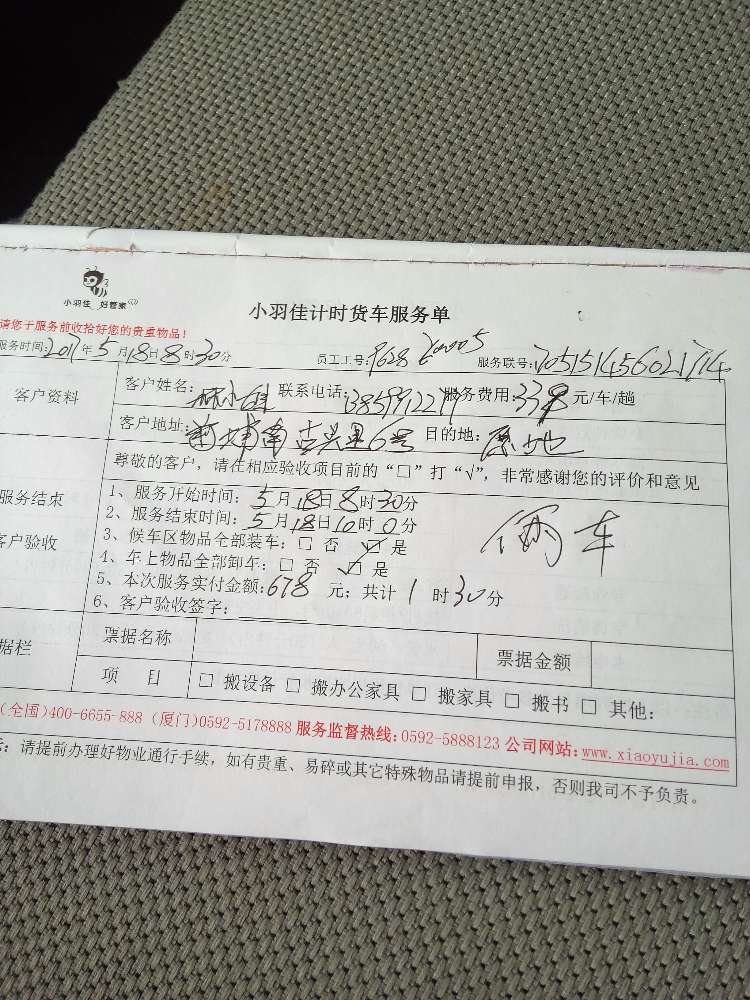 小羽佳 好管家
小羽佳计时货车服务单
请您于服务前收拾好您的贵重物品！
服务时间：2017年5月18日8时30分 员工工号：9628 服务联号：
客户资料 客户姓名： 联系电话： 服务费用：339元/车/趟
客户地址： 目的地：原地
尊敬的客户，请在相应验收项目前的“□”打“√”，非常感谢您的评价和意见
服务结束
客户验收
1、服务开始时间：5月18日8时30分
2、服务结束时间：5月18日10时0分
3、候车区物品全部装车：□ 否 ☑ 是
4、车上物品全部卸车：□ 否 ☑ 是
5、本次服务实付金额：678 元；共计1时30分
6、客户验收签字：
俩车
据栏 票据名称 票据金额
项 目 □ 搬设备 □ 搬办公家具 □ 搬家具 □ 搬书 □ 其他：
(全国)400-6655-888 (厦门)0592-5178888 服务监督热线：0592-5888123 公司网站：www.xiaoyujia.com
：请提前办理好物业通行手续，如有贵重、易碎或其它特殊物品请提前申报，否则我司不予负责。